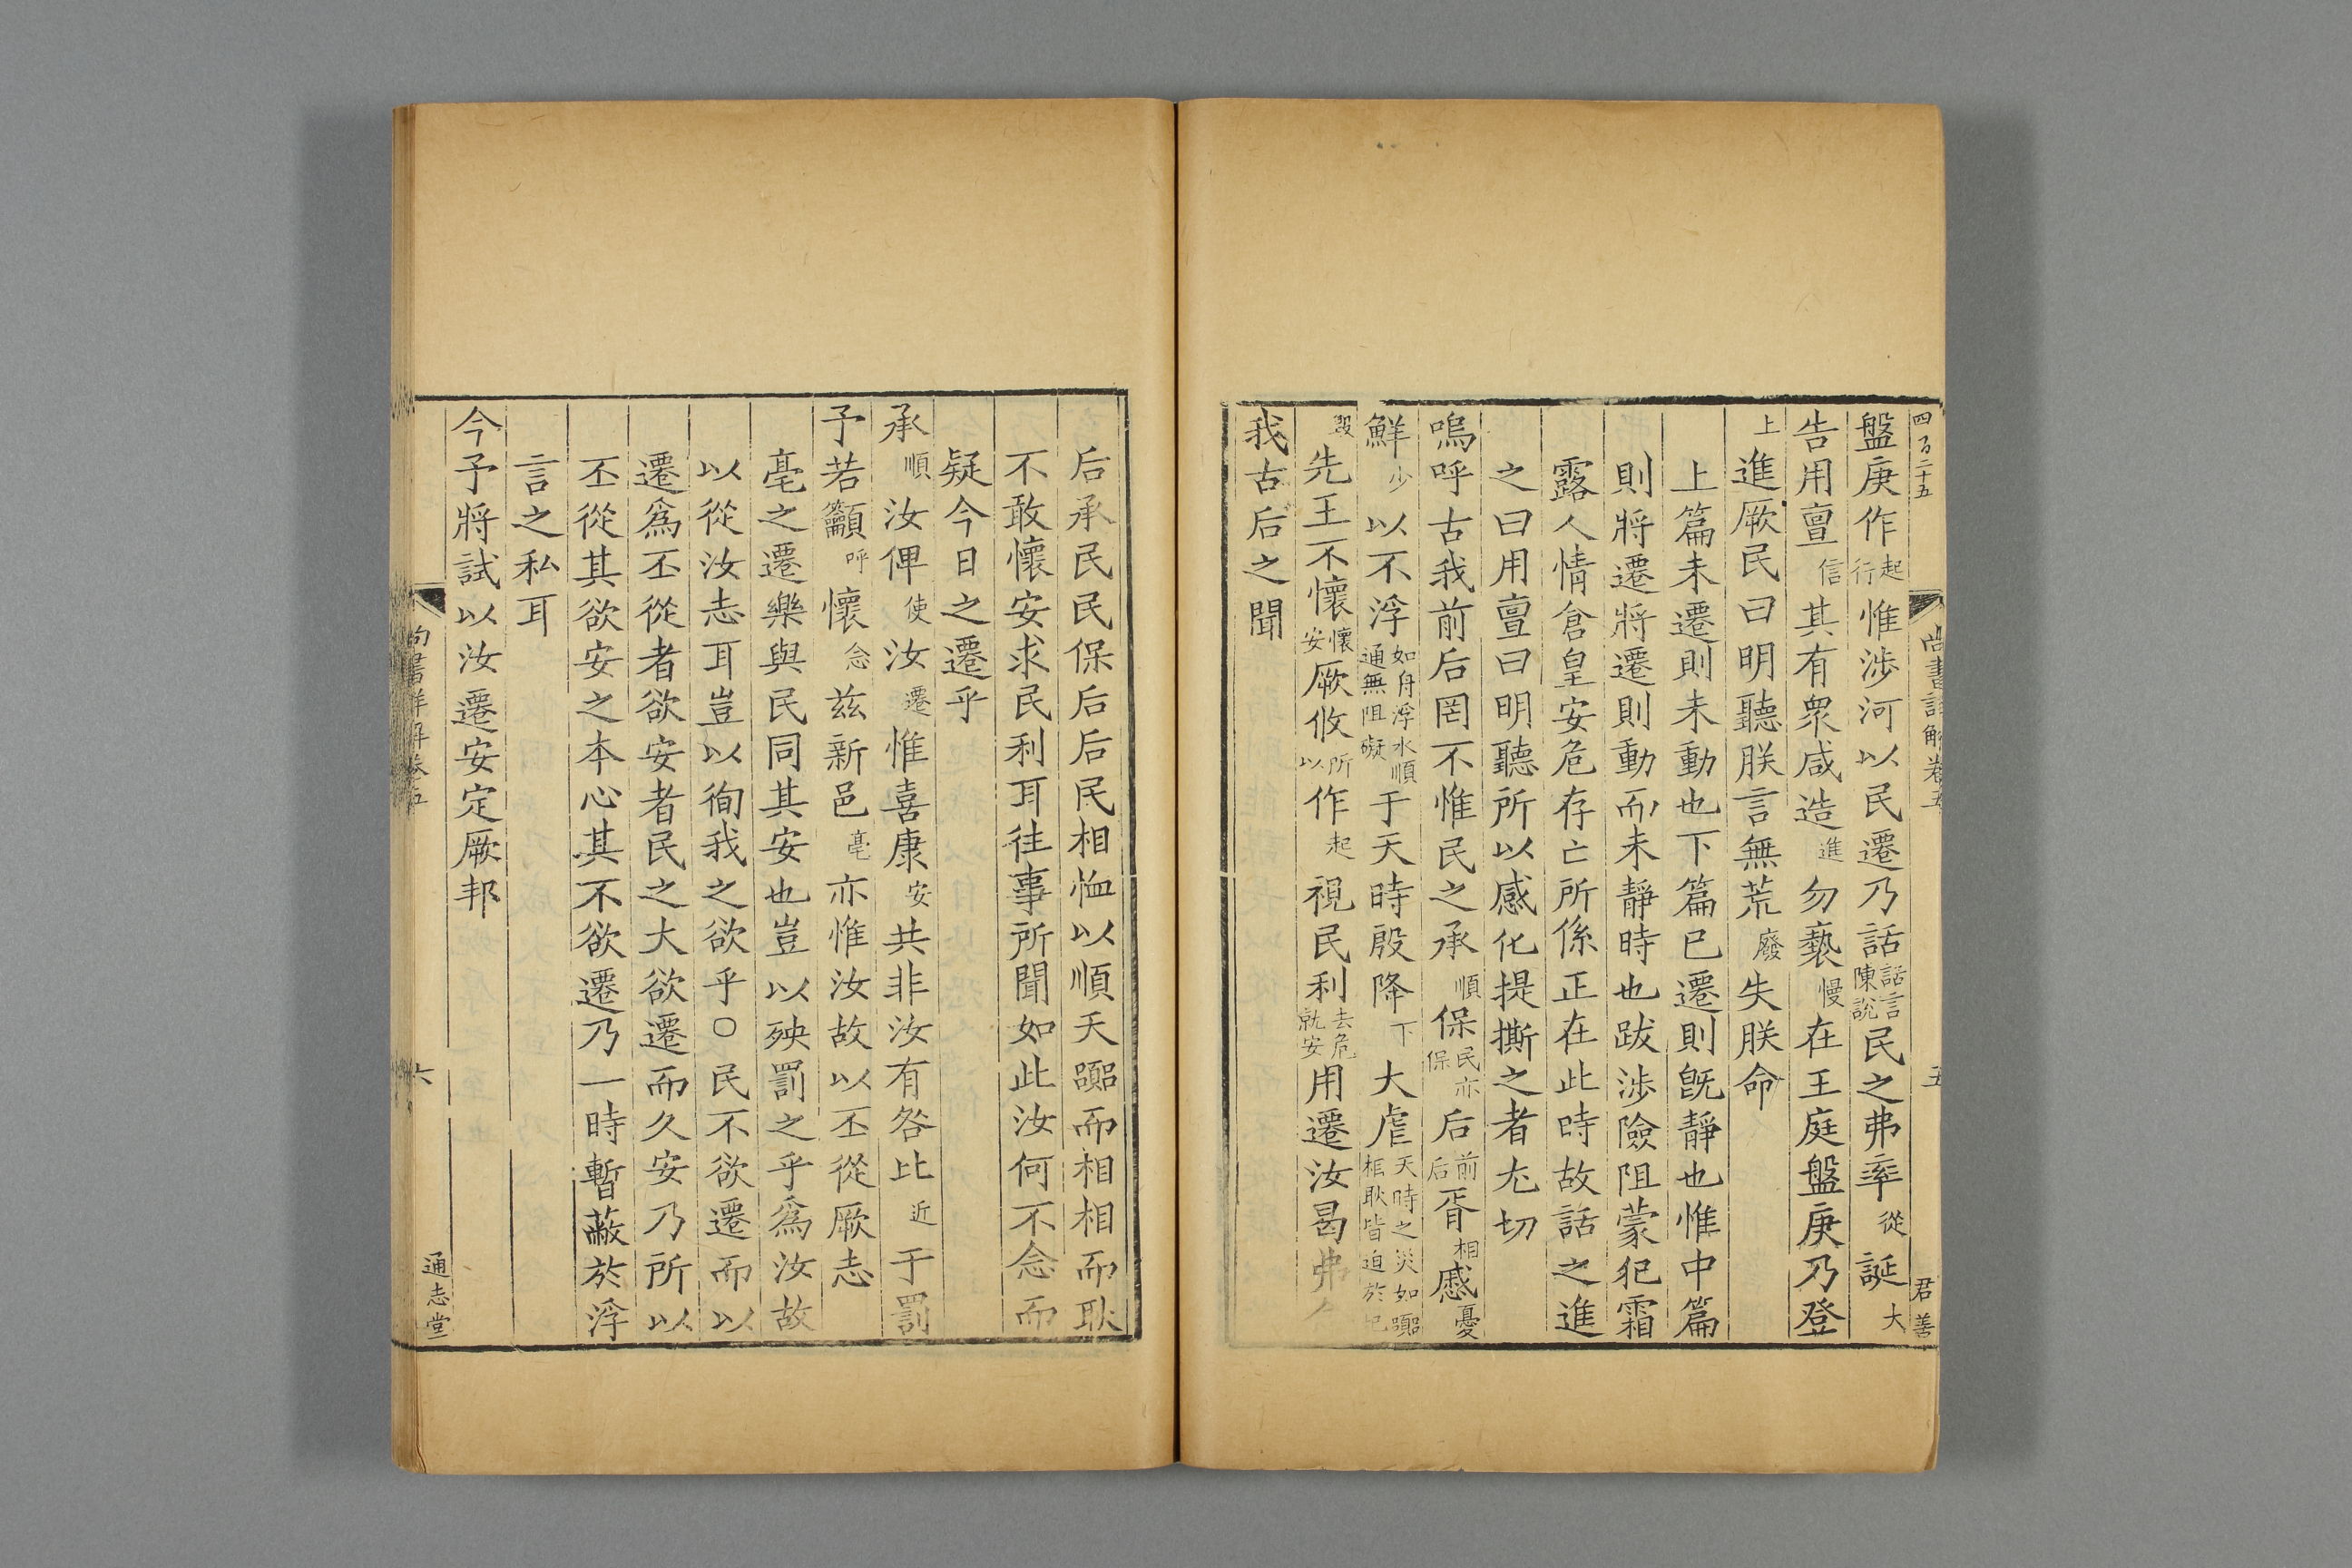 四百二十五
尚書詳解卷五
五
君善
盤庚作起行惟涉河以民遷乃話話言陳說民之弗率從誕大
告用亶信其有衆咸造進勿褻慢在王庭盤庚乃登
上進厥民曰明聽朕言無荒廢失朕命
上篇未遷則未動也下篇已遷則旣靜也惟中篇
則將遷將遷則動而未靜時也跋涉險阻蒙犯霜
露人情倉皇安危存亡所係正在此時故話之進
之曰用亶曰明聽所以感化提撕之者尢切
嗚呼古我前后罔不惟民之承順保民亦保后前后胥相慼憂
鮮少以不浮如舟浮水順通無阻礙于天時殷降下大虐天時之災如躑相耿皆迫於
毀先王不懷懷安厥攸所以作起視民利去危就安用遷汝曷弗
我古后之聞
后承民民保后后民相恤以順天躑而相相而耿
不敢懷安求民利耳往事所聞如此汝何不念而
疑今日之遷乎
承順汝俾使汝遷惟喜康安共非汝有咎比近于罰
予若籲呼懷念兹新邑亳亦惟汝故以丕從厥志
亳之遷樂與民同其安也豈以殃罰之乎爲汝故
以從汝志耳豈以徇我之欲乎○民不欲遷而以
遷爲丕從者欲安者民之大欲遷而久安乃所以
丕從其欲安之本心其不欲遷乃一時暫蔽於浮
言之私耳
今予將試以汝遷安定厥邦
尚書詳解卷五
六
通志堂